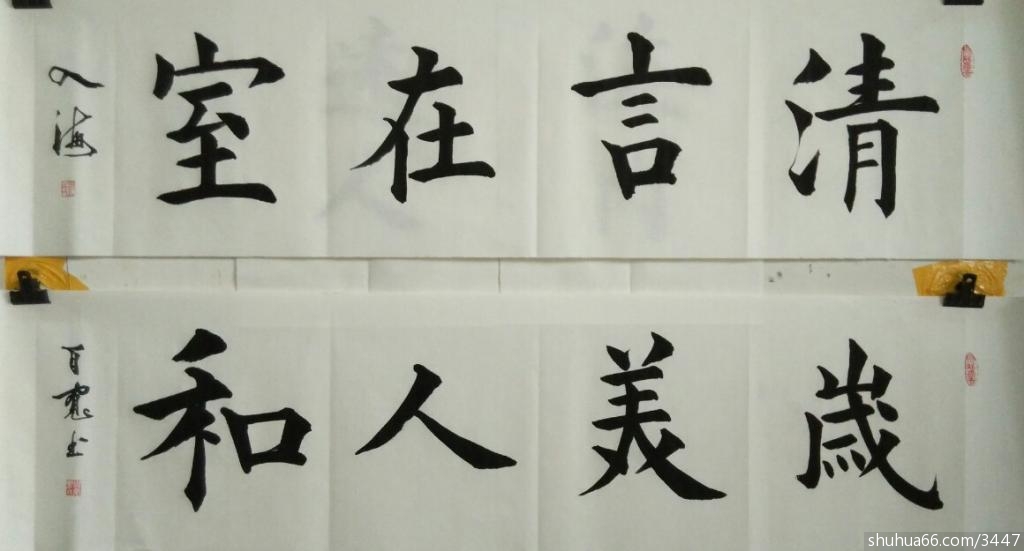 清言在室
歲美人和
shuhua66.com/3447